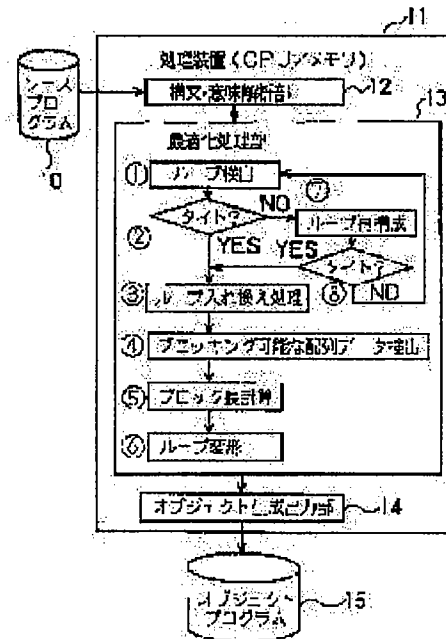 11
処理装置(CPU/メモリ)
ソース
プロ
グラム
10
構文・意味解析部
12
13
最適化処理部
① ループ検出
⑦
② タイト?
NO
ループ再構成
YES
YES
タイト?
⑧
NO
③ ループ入れ換え処理
④ ブロッキング可能な配列データ検出
⑤ ブロック長計算
⑥ ループ変形
オブジェクト生成出力部
14
オブジェクト
プログラム
15